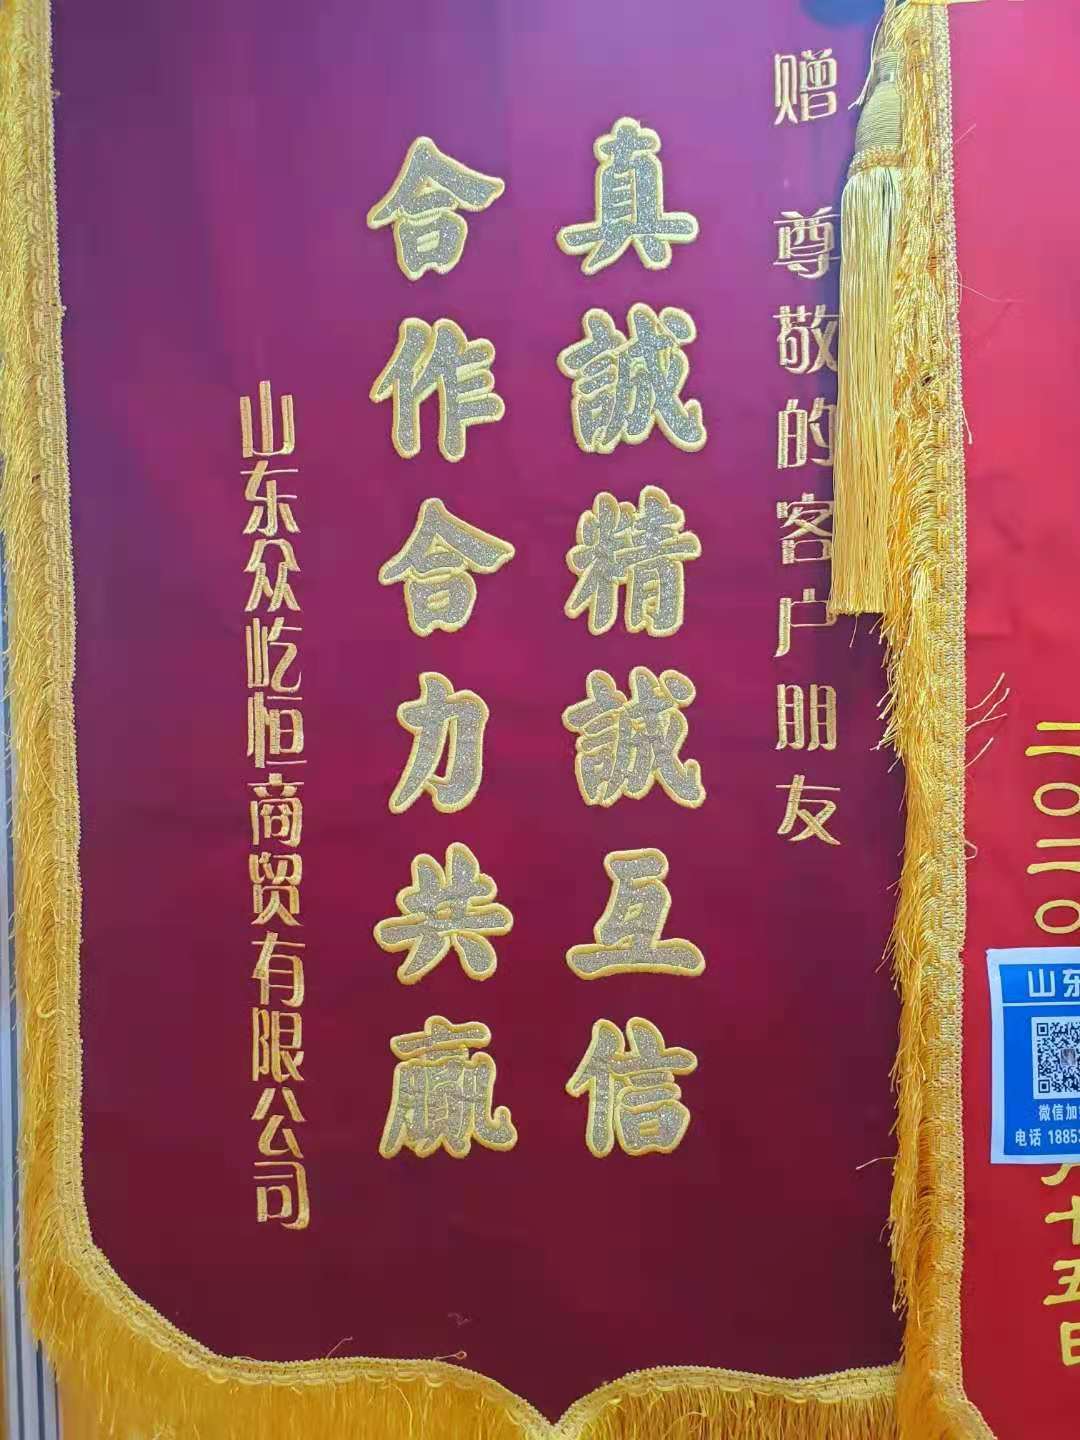 二〇二〇
八十五日
山东
微信加
电话 1885
赠 尊敬的客户朋友
真誠精誠互信
合作合力共赢
山东众屹恒商贸有限公司